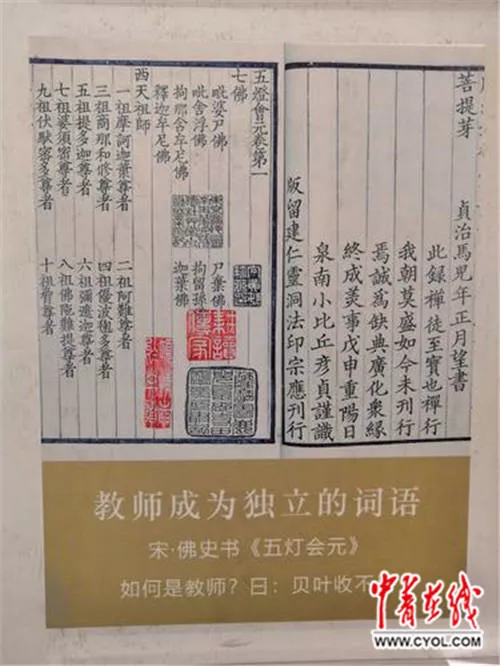 菩提芽
貞治馬兒年正月望書
此録禪徒至寶也禪行
我朝莫盛如今未刊行
焉誠為缺典廣化衆縁
終成羙事戊申重陽日
泉南小比丘彦貞謹識
版留建仁靈洞法印宗應刊行
五燈會元卷第一
七佛
毗婆尸佛 尸棄佛
毗舍浮佛 拘留孫
拘那含牟尼佛 迦葉佛
釋迦牟尼佛
西天祖師
一祖摩訶迦葉尊者 二祖阿難尊者
三祖商那和修尊者 四祖優波毱多尊者
五祖提多迦尊者 六祖彌遮迦尊者
七祖婆須密尊者 八祖佛陀難提尊者
九祖伏馱密多尊者 十祖脅尊者
教师成为独立的词语
宋·佛史书《五灯会元》
如何是教师？曰：贝叶收不
中青在线
WWW.CYOL.COM